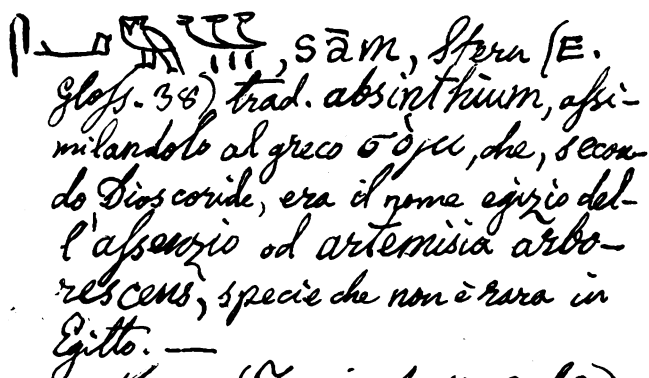 𓋴𓂝𓅓𓆰𓏥, sām, Stern (E.
Gloss. 38) trad. absinthium, assi-
milandolo al greco σόμι, che, secon-
do Dioscoride, era il nome egizio del-
l'assenzio od artemisia arbo-
rescens, specie che non è rara in
Egitto. —